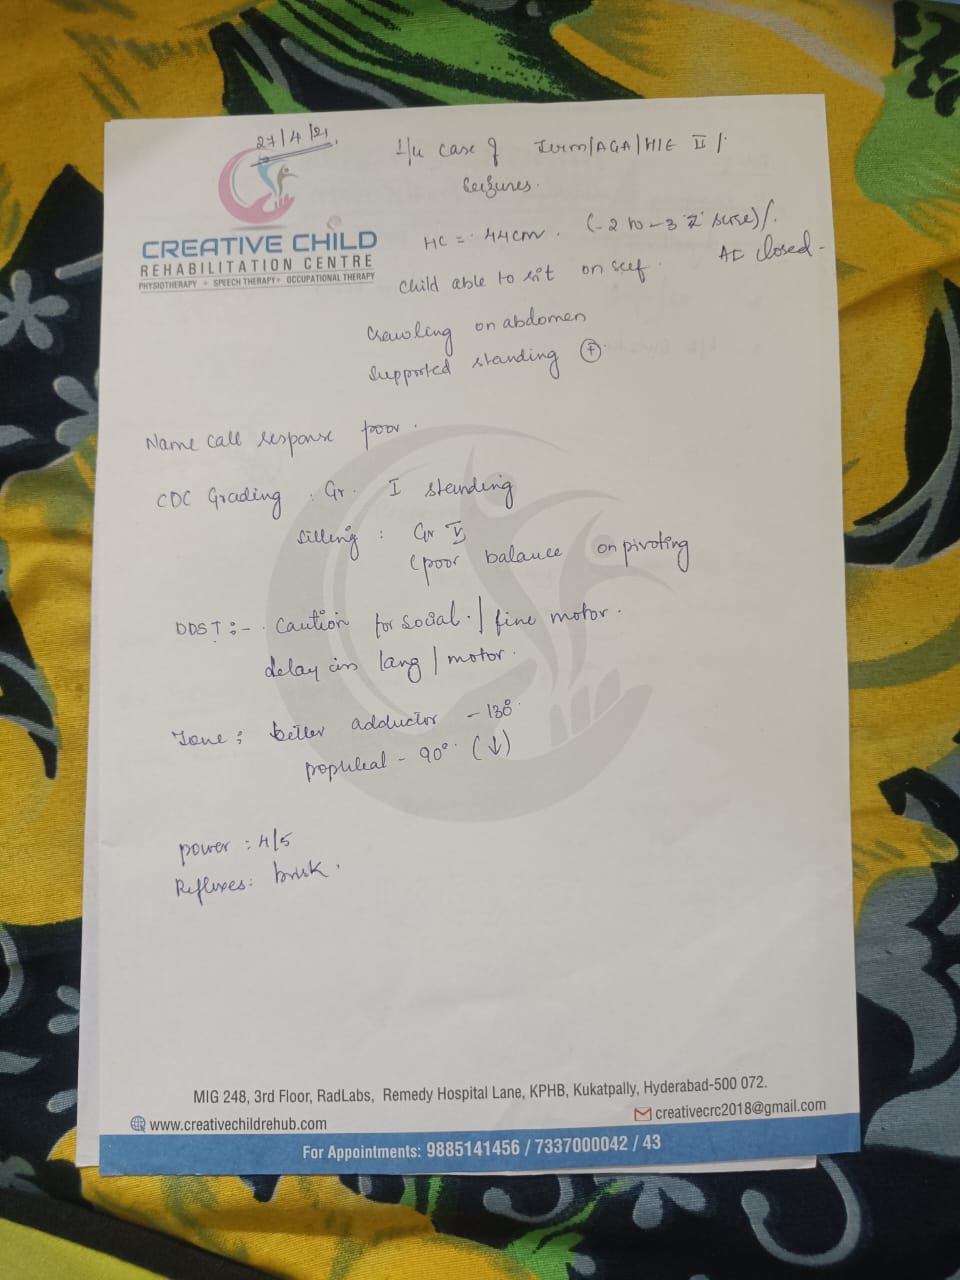 27/4/21.
f/u case of Term/AGA/HIE II /
Seizures.
CREATIVE CHILD
REHABILITATION CENTRE
PHYSIOTHERAPY • SPEECH THERAPY • OCCUPATIONAL THERAPY
HC = 44cm. (-2 to -3 'Z' score)/.
AF closed -
child able to sit on self.
Crawling on abdomen
supported standing (+)
Name call response poor.
CDC Grading : Gr. I standing
sitting : Gr V
(poor balance on pivoting
DDST :- Caution for social / fine motor.
delay in lang / motor.
Tone : better adductor - 130°
popliteal - 90° (↓)
power : 4/5
Reflexes: brisk.
MIG 248, 3rd Floor, RadLabs, Remedy Hospital Lane, KPHB, Kukatpally, Hyderabad-500 072.
www.creativechildrehub.com creativecrc2018@gmail.com
For Appointments: 9885141456 / 7337000042 / 43